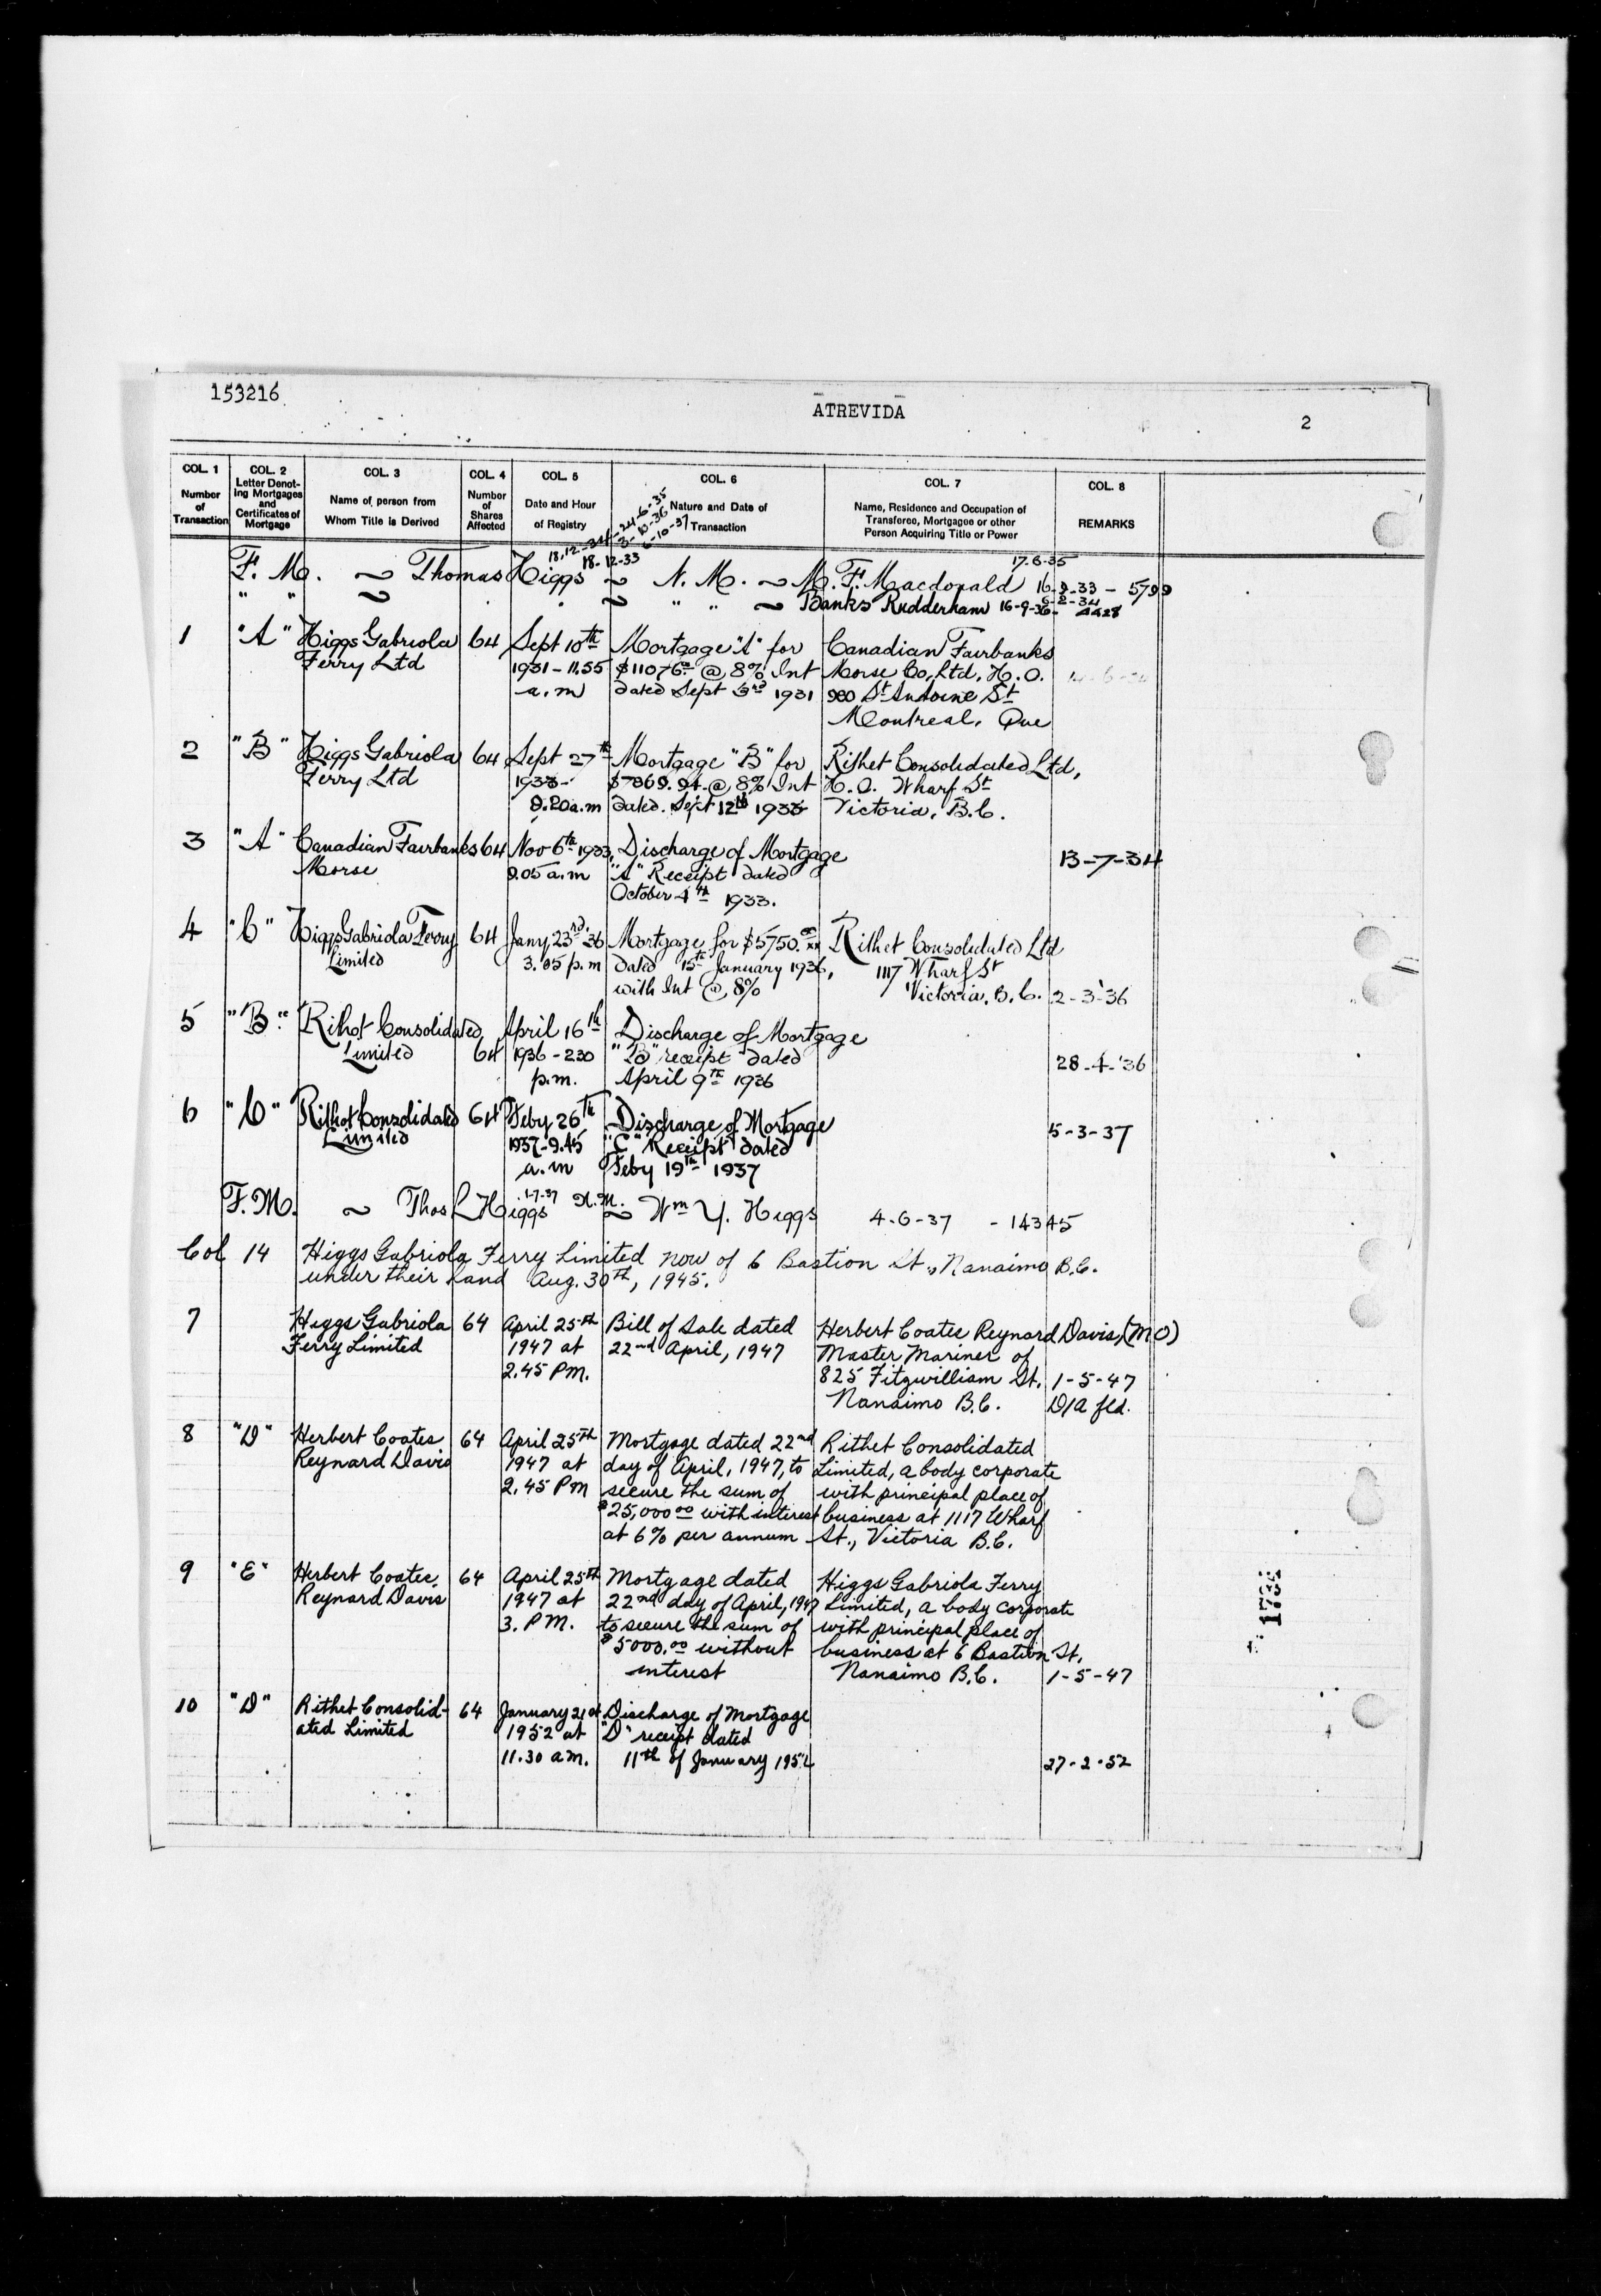 153216
ATREVIDA
2
COL. 1 Number of Transaction
COL. 2 Letter Denoting Mortgages and Certificates of Mortgage
COL. 3 Name of person from Whom Title is Derived
COL. 4 Number of Shares Affected
COL. 5 Date and Hour of Registry
COL. 6 Nature and Date of Transaction
COL. 7 Name, Residence and Occupation of Transferee, Mortgagee or other Person Acquiring Title or Power
COL. 8 REMARKS
18.12-34 - 24-6-35
18-12-33 3-10-36
6-10-37
17.6-35
F. M. ~ Thomas Higgs ~ N. M. ~ M. F. Macdonald 16-9-33 - 5799
" " ~ ~ " " ~ Banks Rudderham 16-9-36- 4428
1 "A" Higgs Gabriola 64 Sept 10th Mortgage "A" for Canadian Fairbanks
Ferry Ltd 1931-11.55 $11076 @ 8% Int Morse Co. Ltd, H.O.
a.m dated Sept 3rd 1931 980 St Antoine St
Montreal, Que
2 "B" Higgs Gabriola 64 Sept 27th Mortgage "B" for Rithet Consolidated Ltd,
Ferry Ltd 1933- $7869.94 @ 8% Int H.O. Wharf St
9.20a.m dated. Sept 12th 1933 Victoria, B.C.
3 "A" Canadian Fairbanks 64 Nov 6th 1933, Discharge of Mortgage 13-7-34
Morse 9.05 a.m "A" Receipt dated
October 4th 1933.
4 "C" Higgs Gabriola Ferry 64 Jany 23rd '36 Mortgage for $5750.00/xx Rithet Consolidated Ltd
Limited 3.05 p.m dated 15th January 1936, 1117 Wharf St
with Int @ 8% Victoria, B.C. 2-3-'36
5 "B" Rithet Consolidated April 16th Discharge of Mortgage
Limited 64 1936-230 "B" receipt dated 28-4-'36
p.m. April 9th 1936
6 "C" Rithet Consolidated 64 Feby 26th Discharge of Mortgage 5-3-37
Limited 1937-9.45 "C" Receipt dated
a.m Feby 19th 1937
F.M. ~ Thos L Higgs 1-7-37 N.M. ~ Wm Y. Higgs 4-6-37 - 14345
Col 14 Higgs Gabriola Ferry Limited now of 6 Bastion St., Nanaimo B.C.
under their hand Aug. 30th, 1945.
7 Higgs Gabriola 64 April 25th Bill of Sale dated Herbert Coates Reynard Davis, (MO)
Ferry Limited 1947 at 22nd April, 1947 Master Mariner of
2.45 PM. 825 Fitzwilliam St. 1-5-47
Nanaimo B.C. D/a fld.
8 "D" Herbert Coates 64 April 25th Mortgage dated 22nd Rithet Consolidated
Reynard Davis 1947 at day of April, 1947, to Limited, a body corporate
2.45 PM secure the sum of with principal place of
$25,000.00 with interest business at 1117 Wharf
at 6% per annum St., Victoria B.C.
9 "E" Herbert Coates 64 April 25th Mortgage dated Higgs Gabriola Ferry
Reynard Davis 1947 at 22nd day of April, 1947 Limited, a body corporate
3. PM. to secure the sum of with principal place of
$5000.00 without business at 6 Bastion St,
interest Nanaimo B.C. 1-5-47
10 "D" Rithet Consolid- 64 January 21st Discharge of Mortgage
ated Limited 1952 at "D" receipt dated
11.30 am. 11th of January 1952 27-2-52